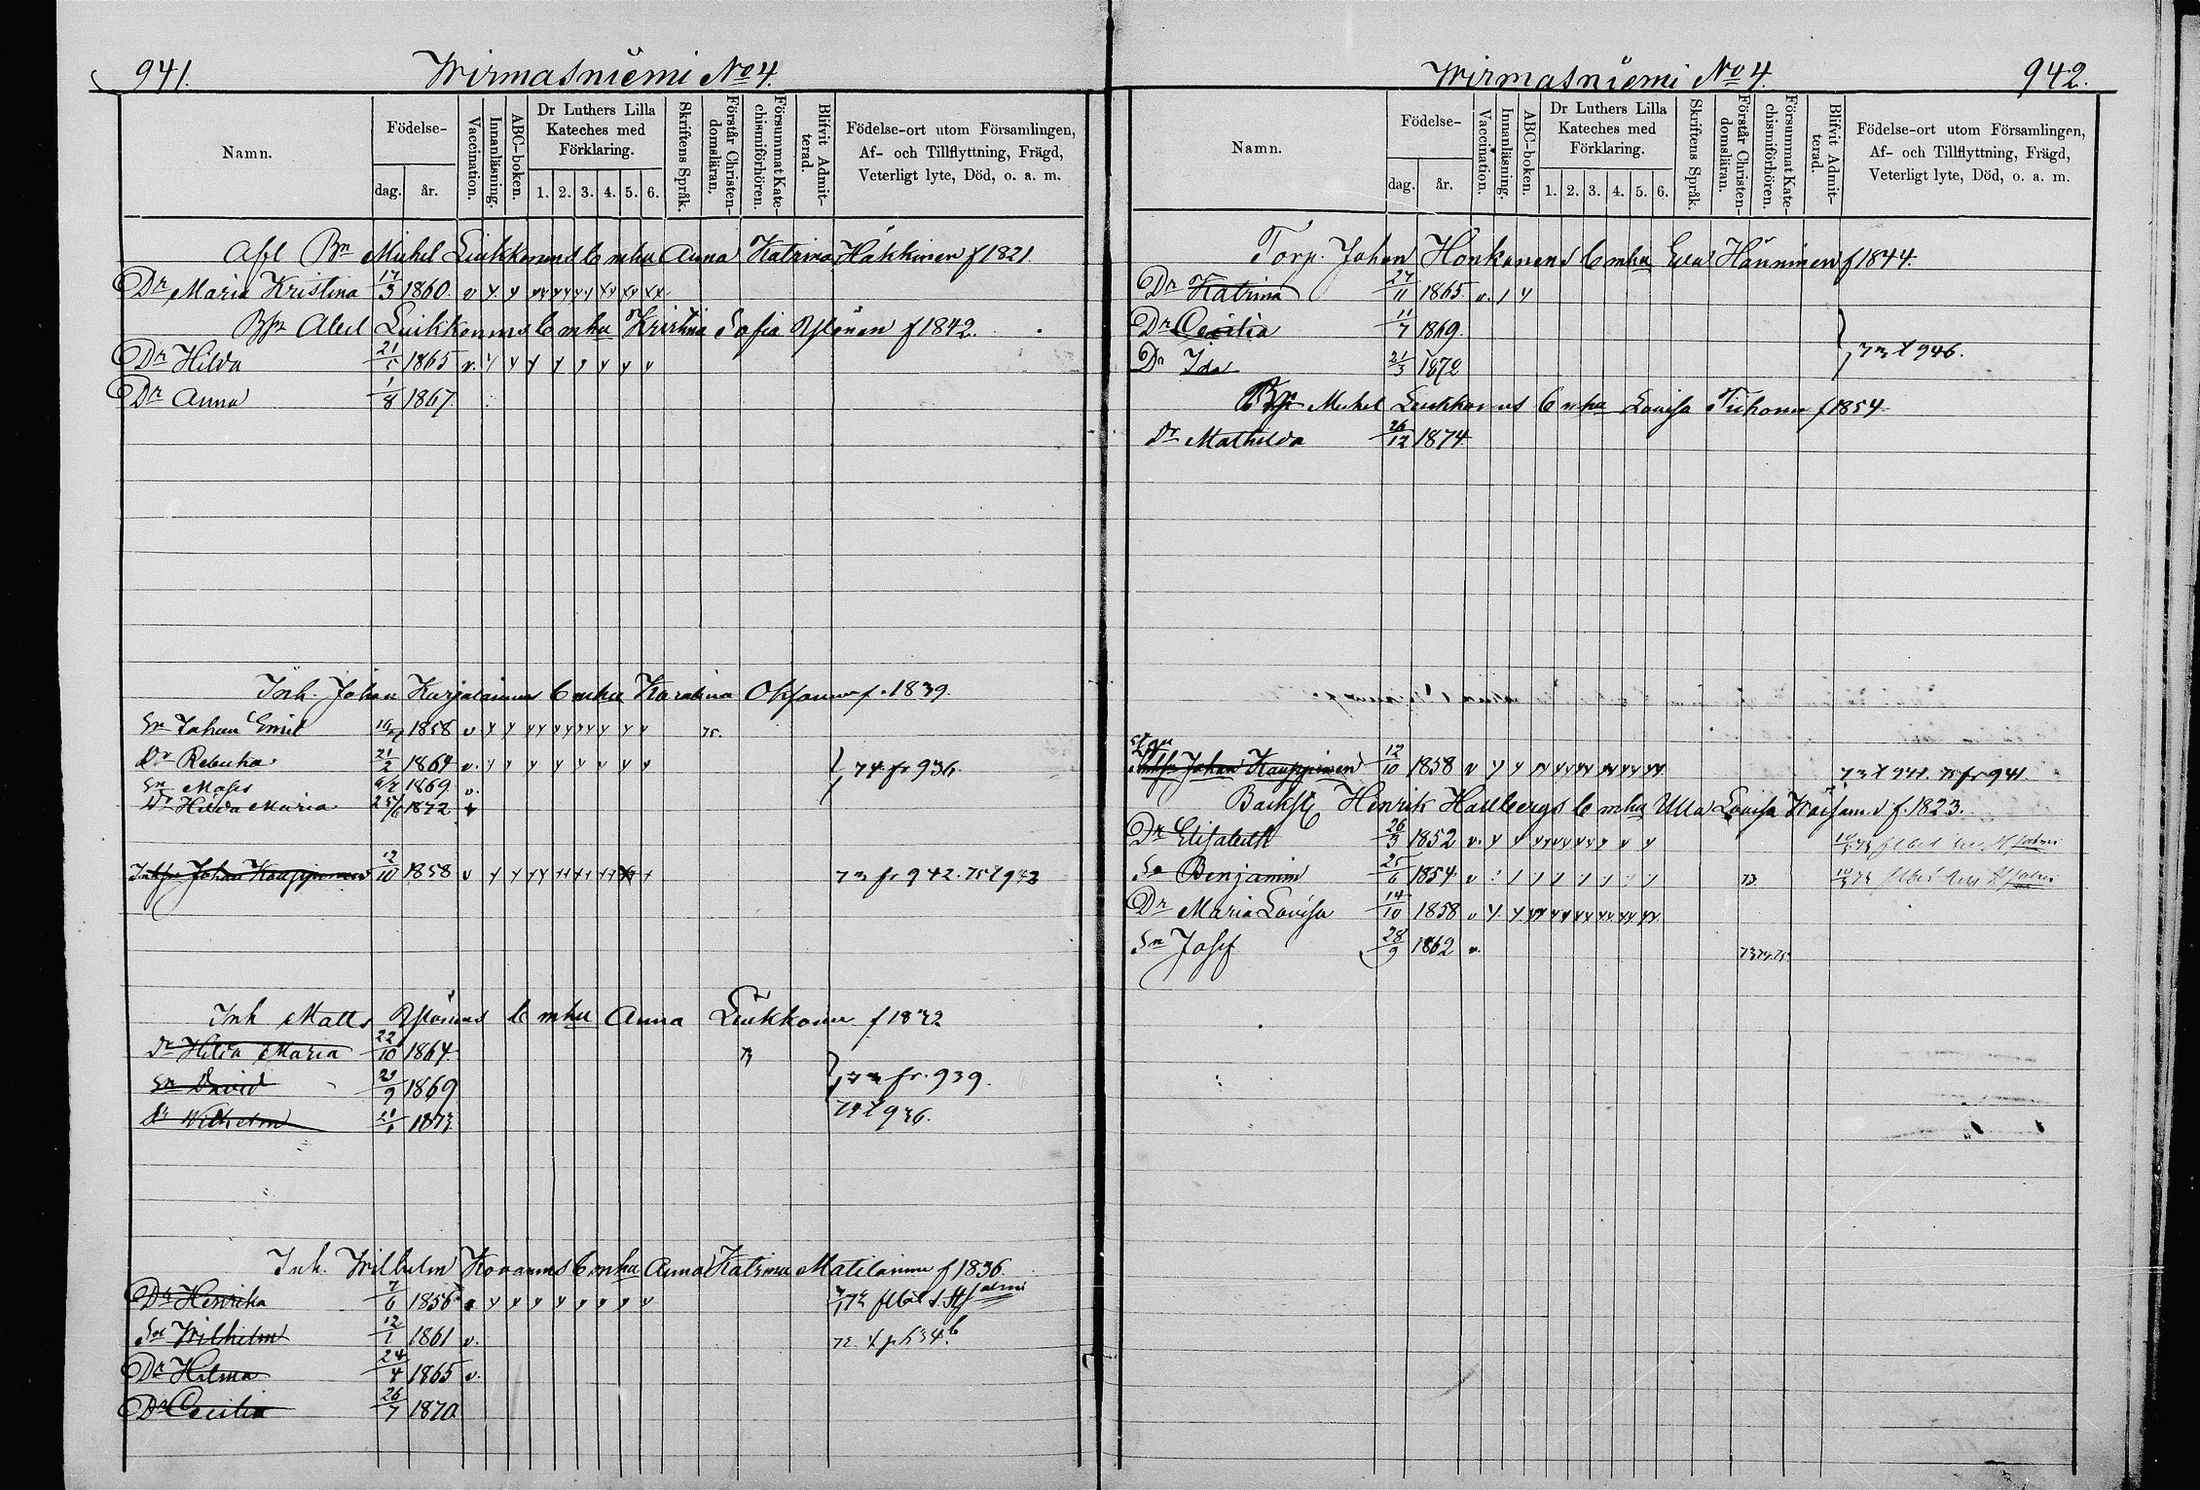 941. Wirmasniemi No 4.
Namn.
Födelse-
dag.
år.
Vaccination.
Innanläsning.
ABC-boken.
Dr Luthers Lilla
Kateches med
Förklaring.
1. 2. 3. 4. 5. 6.
Skriftens Språk.
Förstår Christen-
domsläran.
Försummat Kate-
chismiförhören.
Blifvit Admit-
terad.
Födelse-ort utom Församlingen,
Af- och Tillflyttning, Frägd,
Veterligt lyte, Död, o. a. m.
Afl Bn Michel Liukkonens b mhu Anna Katrina Häkkinen f 1821
Dr Maria Kristina 17/3 1860. v
Abel Liukkonens b mhu Kristina Sofia Ylönen f 1842.
Dr Hilda 21/5 1865 v.
Dr Anna 1/8 1867.
Inh. Johan Karjalainens b mhu Karolina f. 1839.
Sn Johan Emil 1858 v 75.
Dr Rebecka 21/2 1864 v. 74 fr 936
Sn Moses 1869 v.
Dr Hilda Maria 1872
Johan Kauppinen 12/10 1858 v 73 fr 942. 75 t 942
Inh Matts Ylönens b mhu Anna Liukkonen f 1832
Dr Hilda Maria 22/10 1864 73
Sn David 29/9 1869 73 fr. 939.
Wilhelm 1873 74 t 936.
Inh. Wilhelm Kovanens b mhu Anna Katrina Matilainen f 1836.
Dr Henrika 7/6 1856
Sn Wilhelm 12/1 1861 v.
Dr Hilma 24/4 1865 v.
Dr Cecilia 26/7 1870
Wirmasniemi No 4. 942.
Namn.
Födelse-
dag.
år.
Vaccination.
Innanläsning.
ABC-boken.
Dr Luthers Lilla
Kateches med
Förklaring.
1. 2. 3. 4. 5. 6.
Skriftens Språk.
Förstår Christen-
domsläran.
Försummat Kate-
chismiförhören.
Blifvit Admit-
terad.
Födelse-ort utom Församlingen,
Af- och Tillflyttning, Frägd,
Veterligt lyte, Död, o. a. m.
Torp. Johan Honkanens b mhu Eva Hänninen f 1844.
Dr Katrina 27/11 1865. v.
Dr Cecilia 11/7 1869.
Dr Ida 21/3 1872 73 t 946.
Michel Liukkonens b mhu Lovisa Tiihonen f 1854
Dr Mathilda 26/12 1874
Johan Kauppinen 12/10 1858 v 73 t 941. 75 fr 941
Henrik Hallbergs b mhu Ulla Lovisa Wäisänen f. 1823.
Dr Elisabeth 26/3 1852 v.
Sn Benjamin 25/6 1854 v 73.
Dr Maria Lovisa 14/10 1858 v
Sn Josef 28/9 1862 v. 73 74 75